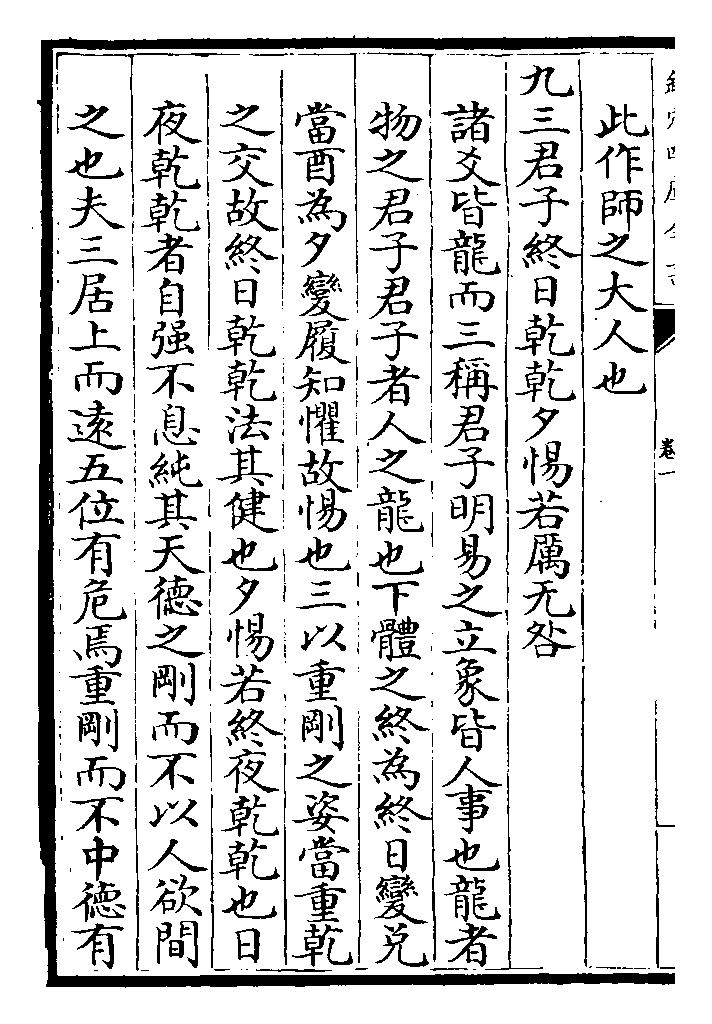 此作師之大人也
九三君子終日乾乾夕惕若厲无咎
諸爻皆龍而三稱君子明易之立象皆人事也龍者
物之君子君子者人之龍也下體之終為終日變兑
當酉為夕變履知懼故惕也三以重剛之姿當重乾
之交故終日乾乾法其健也夕惕若終夜乾乾也日
夜乾乾者自强不息純其天德之剛而不以人欲間
之也夫三居上而遠五位有危焉重剛而不中德有
卷一